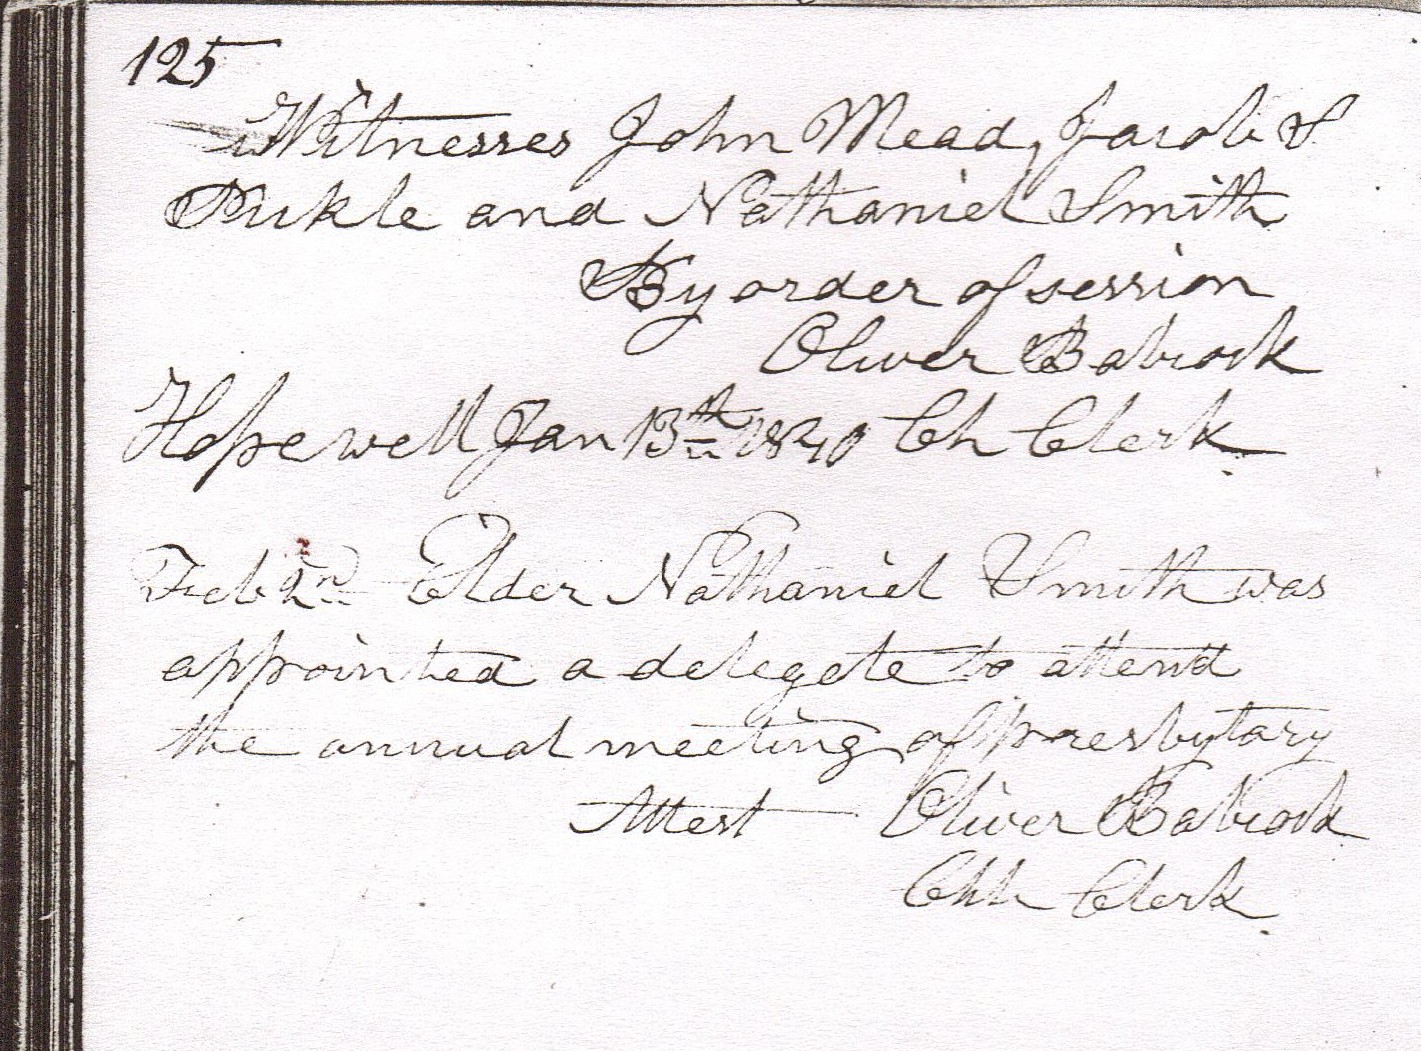 125
Witnesses John Mead, Jacob S
Pickle and Nathaniel Smith
By order of session
Oliver Babcock
Hopewell Jan 13th 1840 Ch Clerk
Feb 2nd Elder Nathaniel Smith was
appointed a delegete to attend
the annual meeting of presbytary
Attest Oliver Babcock
Chh Clerk